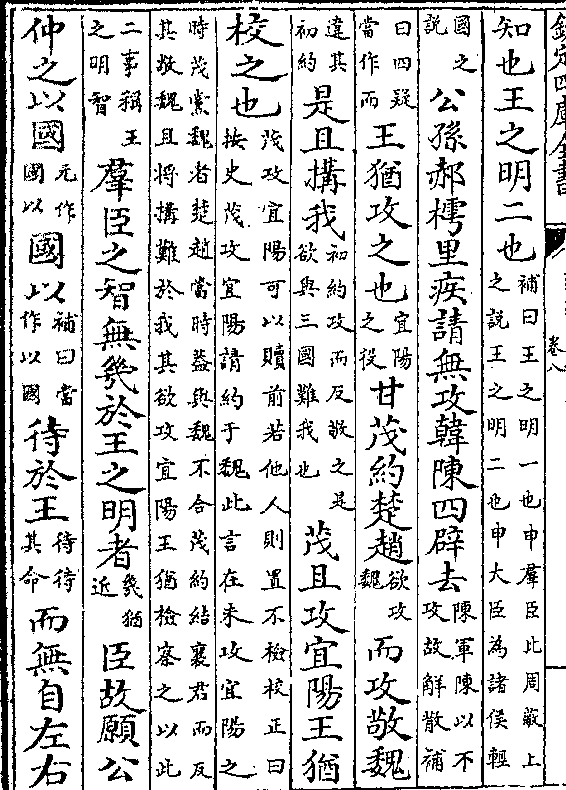 欽定四庫全書 卷八
知也王之明二也補曰王之明一也申羣臣比周蔽上之說王之明二也申大臣為諸侯輕
國之說公孫郝樗里疾請無攻韓陳四辟去陳軍陳以不攻故解散補
曰四疑當作而王猶攻之也宜陽之役甘茂約楚趙欲攻魏而攻敬魏
違其初約是且搆我初約攻而反敬之是欲與三國難我也茂且攻宜陽王猶
校之也茂攻宜陽可以贖前若他人則置不檢校正曰按史茂攻宜陽請約于魏此言在未攻宜陽之
時茂黨魏者楚趙當時蓋與魏不合茂約結襄君而反其敬魏且將搆難於我其欲攻宜陽王猶檢察之以此
二事稱王之明智羣臣之智無幾於王之明者幾猶近臣故願公
仲之以國元作國以國以補曰當作以國待於王待待其命而無自左右